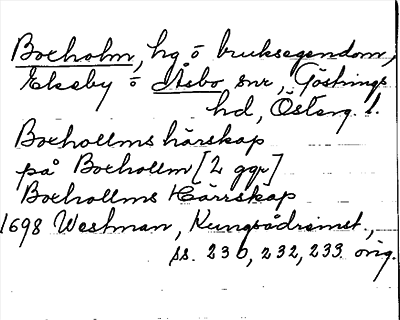 Boxholm, hg o bruksegendom,
Ekeby o Åsbo snr, Göstrings
hd, Österg. l.
Boxhollms härskap
på Boxhollm [2 ggr]
Boxhollms Härrskap
1698 Westman, Kungsådreinst.,
ss. 230, 232, 233 orig.